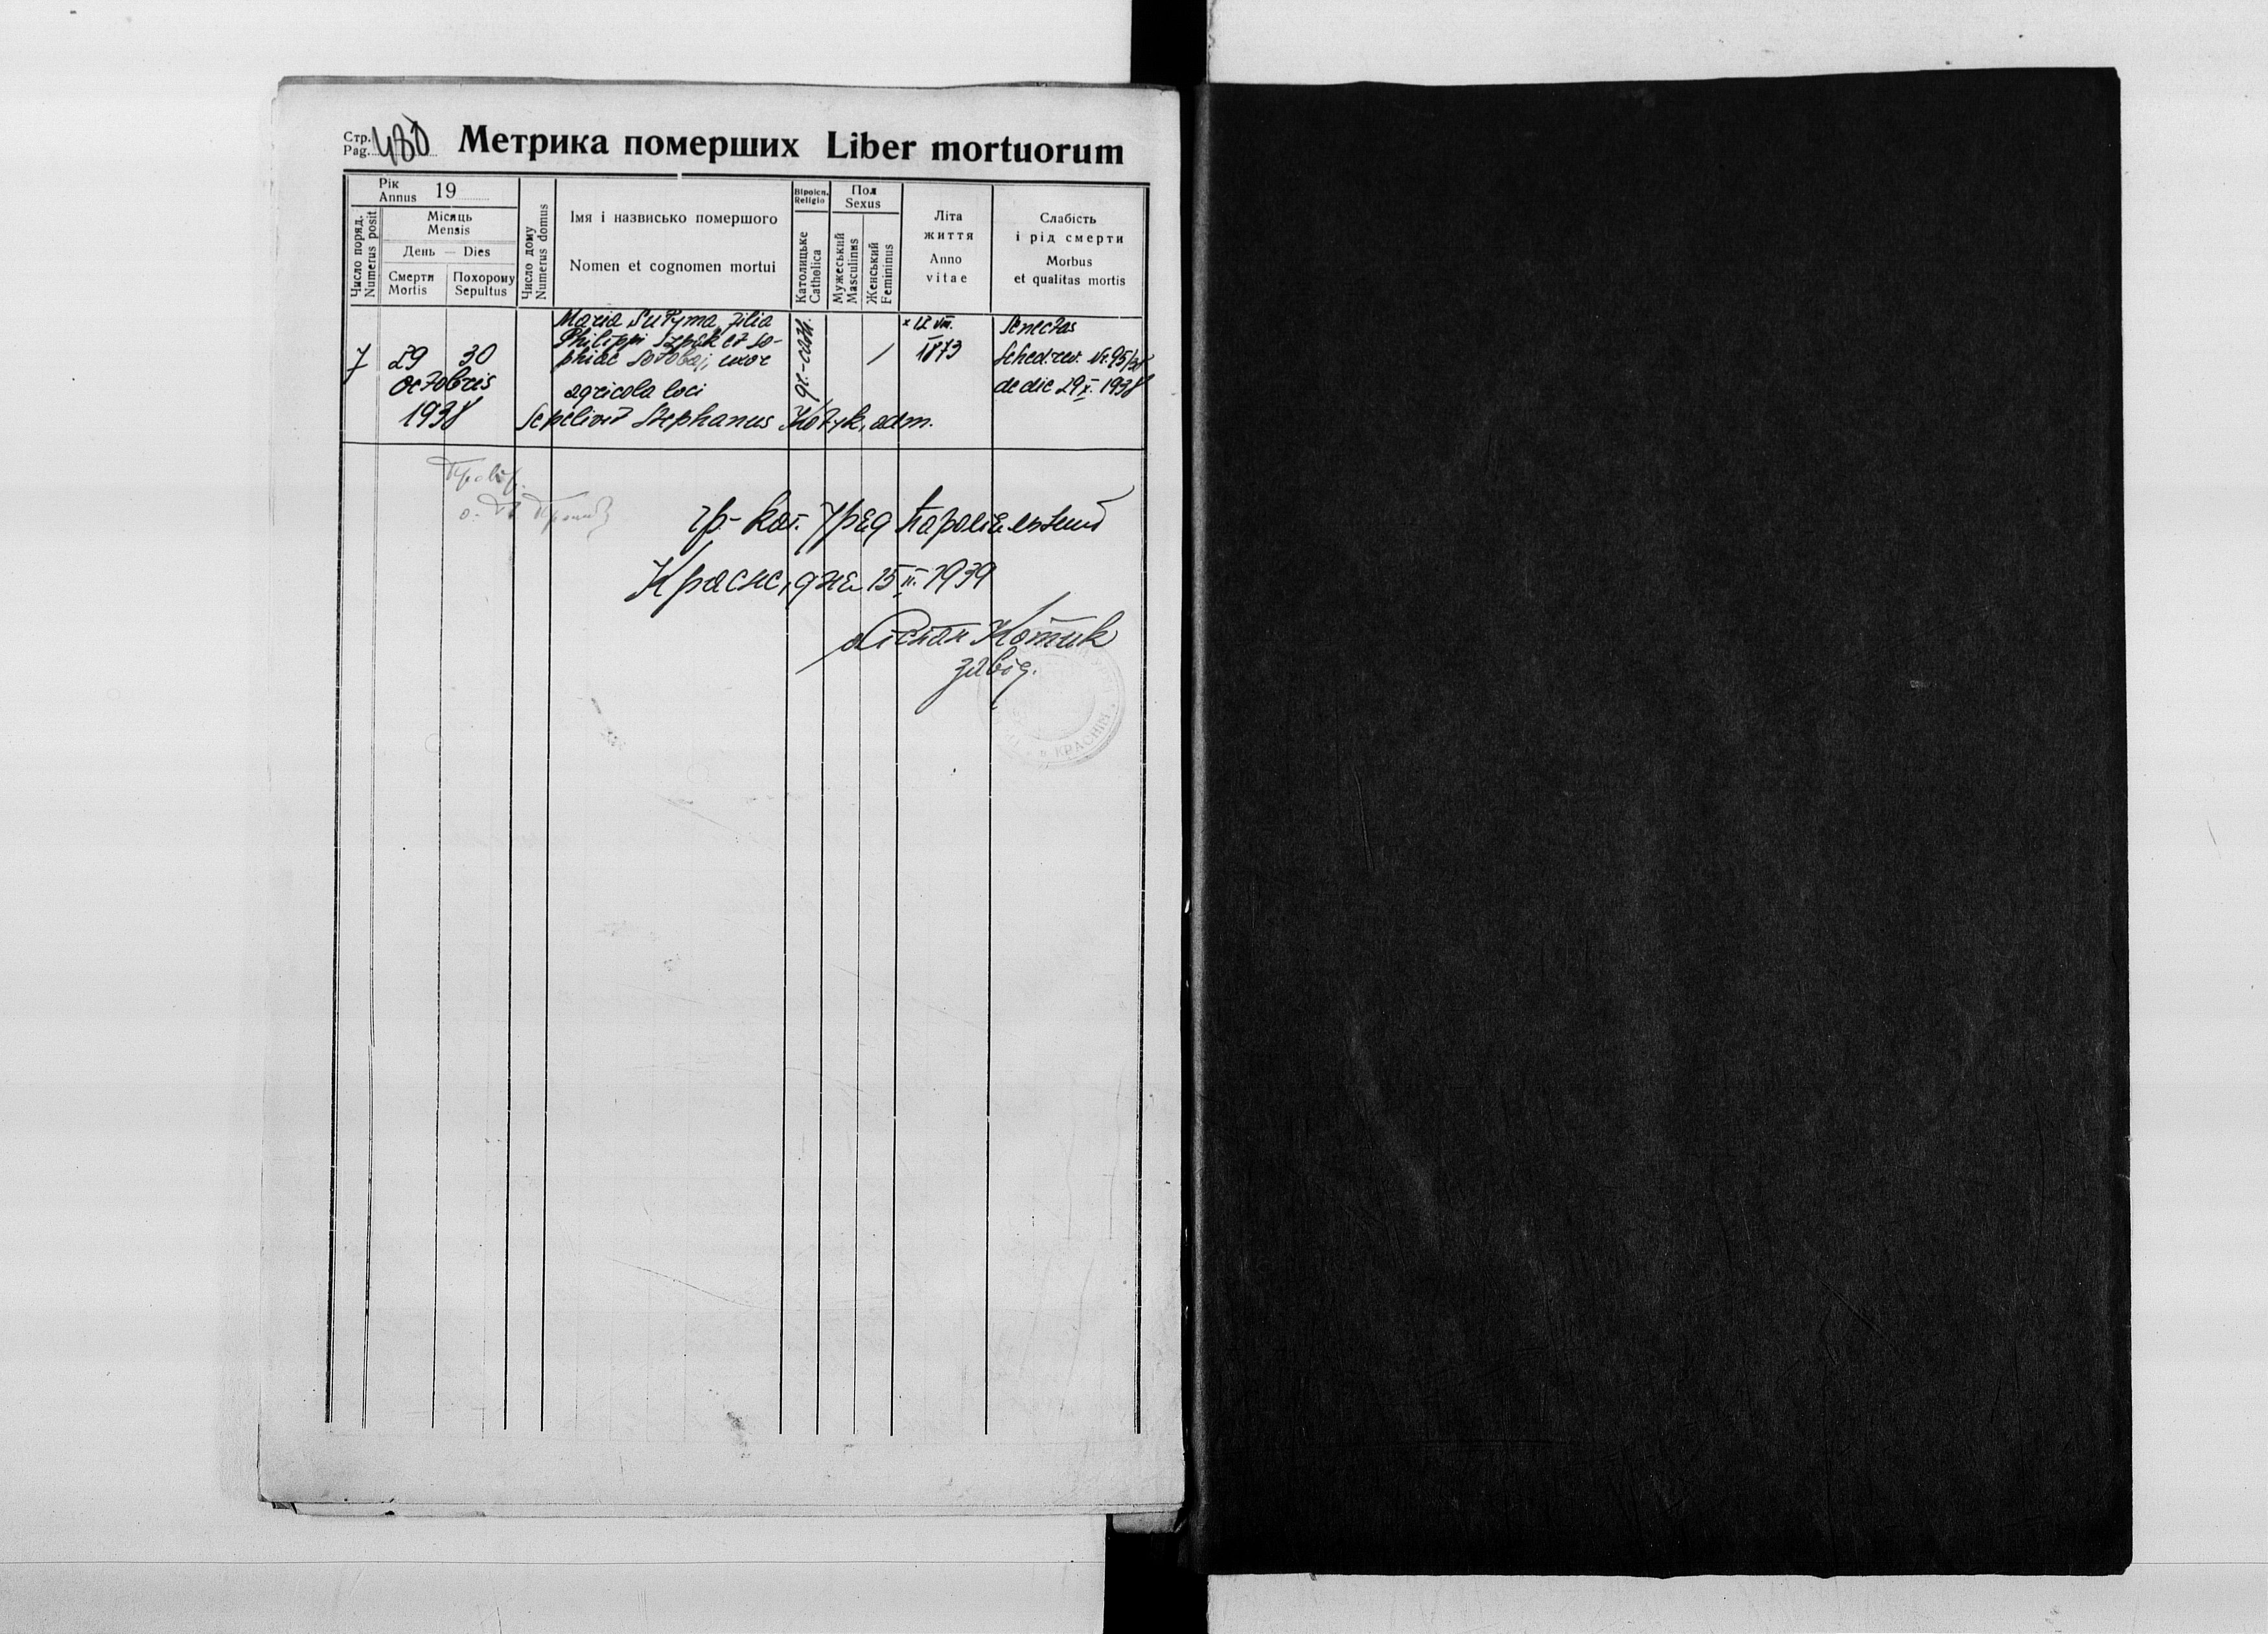 Стр.
Pag. 480 Метрика померших Liber mortuorum
Рік
Annus 19
Число поряд.
Numerus posit
Місяць
Mensis
День — Dies
Смерти
Mortis
Похорону
Sepultus
Число дому
Numerus domus
Імя і назвисько помершого
Nomen et cognomen mortui
Віроісп.
Religio
Католицьке
Catholica
Пол
Sexus
Мужеський
Masculinus
Женський
Femininus
Літа
життя
Anno
vitae
Слабість
і рід смерти
Morbus
et qualitas mortis
7
29 30
Octobris
1938
Maria Sutyma, filia
Philippi Szpak et So-
phiae uxor
agricola loci
gr.-cath.
/
1873
Senectus
Sched. rev. Nr. 95/38
de die 29 X. 1938
Sepelivit Stephanus Kotyk, adm.
гр-кат. Уряд Парохіяльний
Красне, дня 15 II. 1939
Котик
завід.
КРАСНІМ